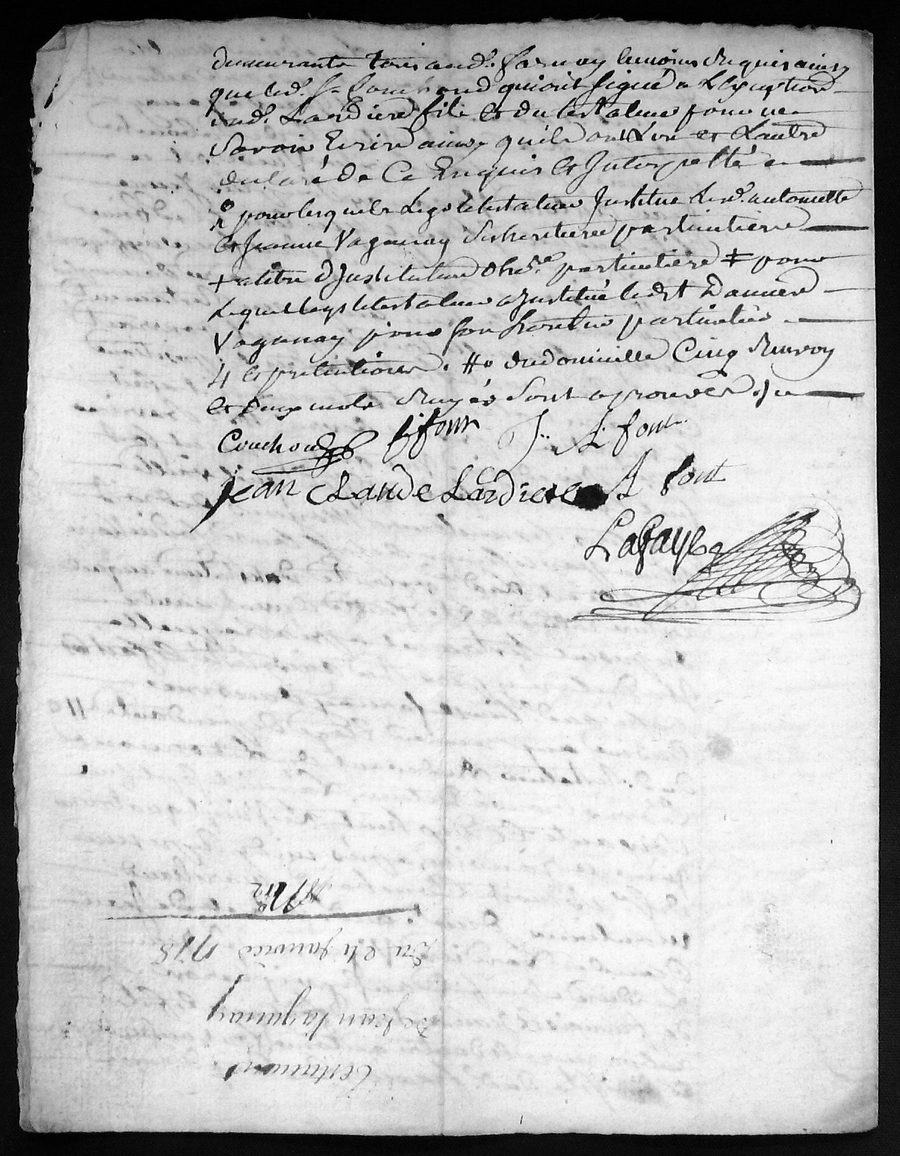 demeurants tous aud. farnay temoins requis ainsy
que led. Sr Couchoud qui ont signé a L'exception
dud. Lardiere fils et du testateur pour ne
Savoir Ecrire ainsy qu'ils ont L'un et L'autre
declaré de Ce Enquis et Interpellé
pour lesquels Legs le testateur Institue Lesd. antoinette
et Jeanne Vaganay Ses heritieres particulieres
+ a titre d'Institution particuliere ‡ pour
Lequel legs le testateur a Institué ledit
Vaganay pour son heritier particulier
4 et pretentions. # du domicille Cinq Renvoy
et Deux mots Rayés Sont aprouvés
Couchoud font J. font
jean Claude Lardiere font
Lafaye
Testament
De Jean Vaganay
Du 24 Janvier 1778